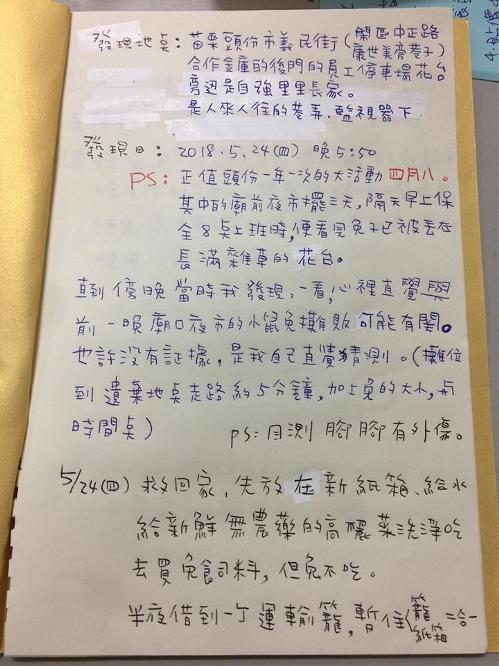 發現地点：苗栗頭份市義民街(鬧區中正路
康世美旁巷子)
合作金庫的後門的員工停車場花台
旁边是自強里里長家。
是人來人往的巷弄.監視器下
發現日：2018.5.24(四) 晚5:50
PS: 正值頭份一年一次的大活動 四月八。
其中的廟前夜市擺三天,隔天早上保
全8点上班時,便看見兔子已被丟在
長滿雜草的花台。
直到傍晚當時我發現,一看,心裡直覺與
前一晚廟口夜市的小鼠兔攤販可能有関。
也許没有証據,是我自己直覺猜測。(攤位
到遺棄地点走路約5分鐘,加上兔的大小,与
時間点) ps:目測腳腳有外傷。
5/24(四) 救回家,先放在新紙箱、給水
給新鮮無農藥的高麗菜洗淨吃
去買兔飼料,但兔不吃。
半夜借到一丁運輸籠,暫住(籠 紙箱 二合一